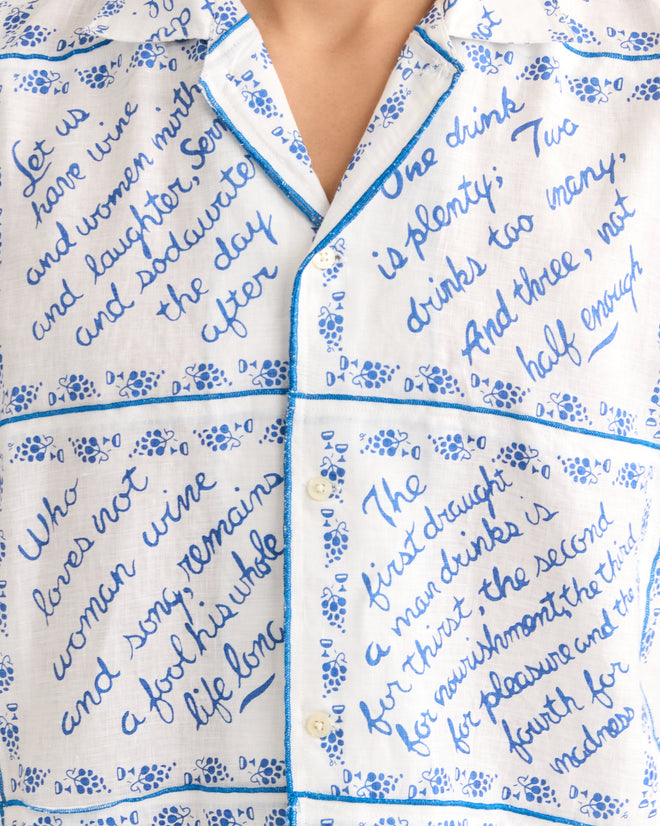 Let us
have wine
and women mirth
and laughter, Serm
and sodawater
the day
after
One drink
is plenty; Two
drinks too many,
And three, not
half enough
Who
loves not
woman wine
and song, remains
a fool his whole
life long
The
first draught
a man drinks is
for thirst, the second
for nourishment, the third
for pleasure and the
fourth for
madness